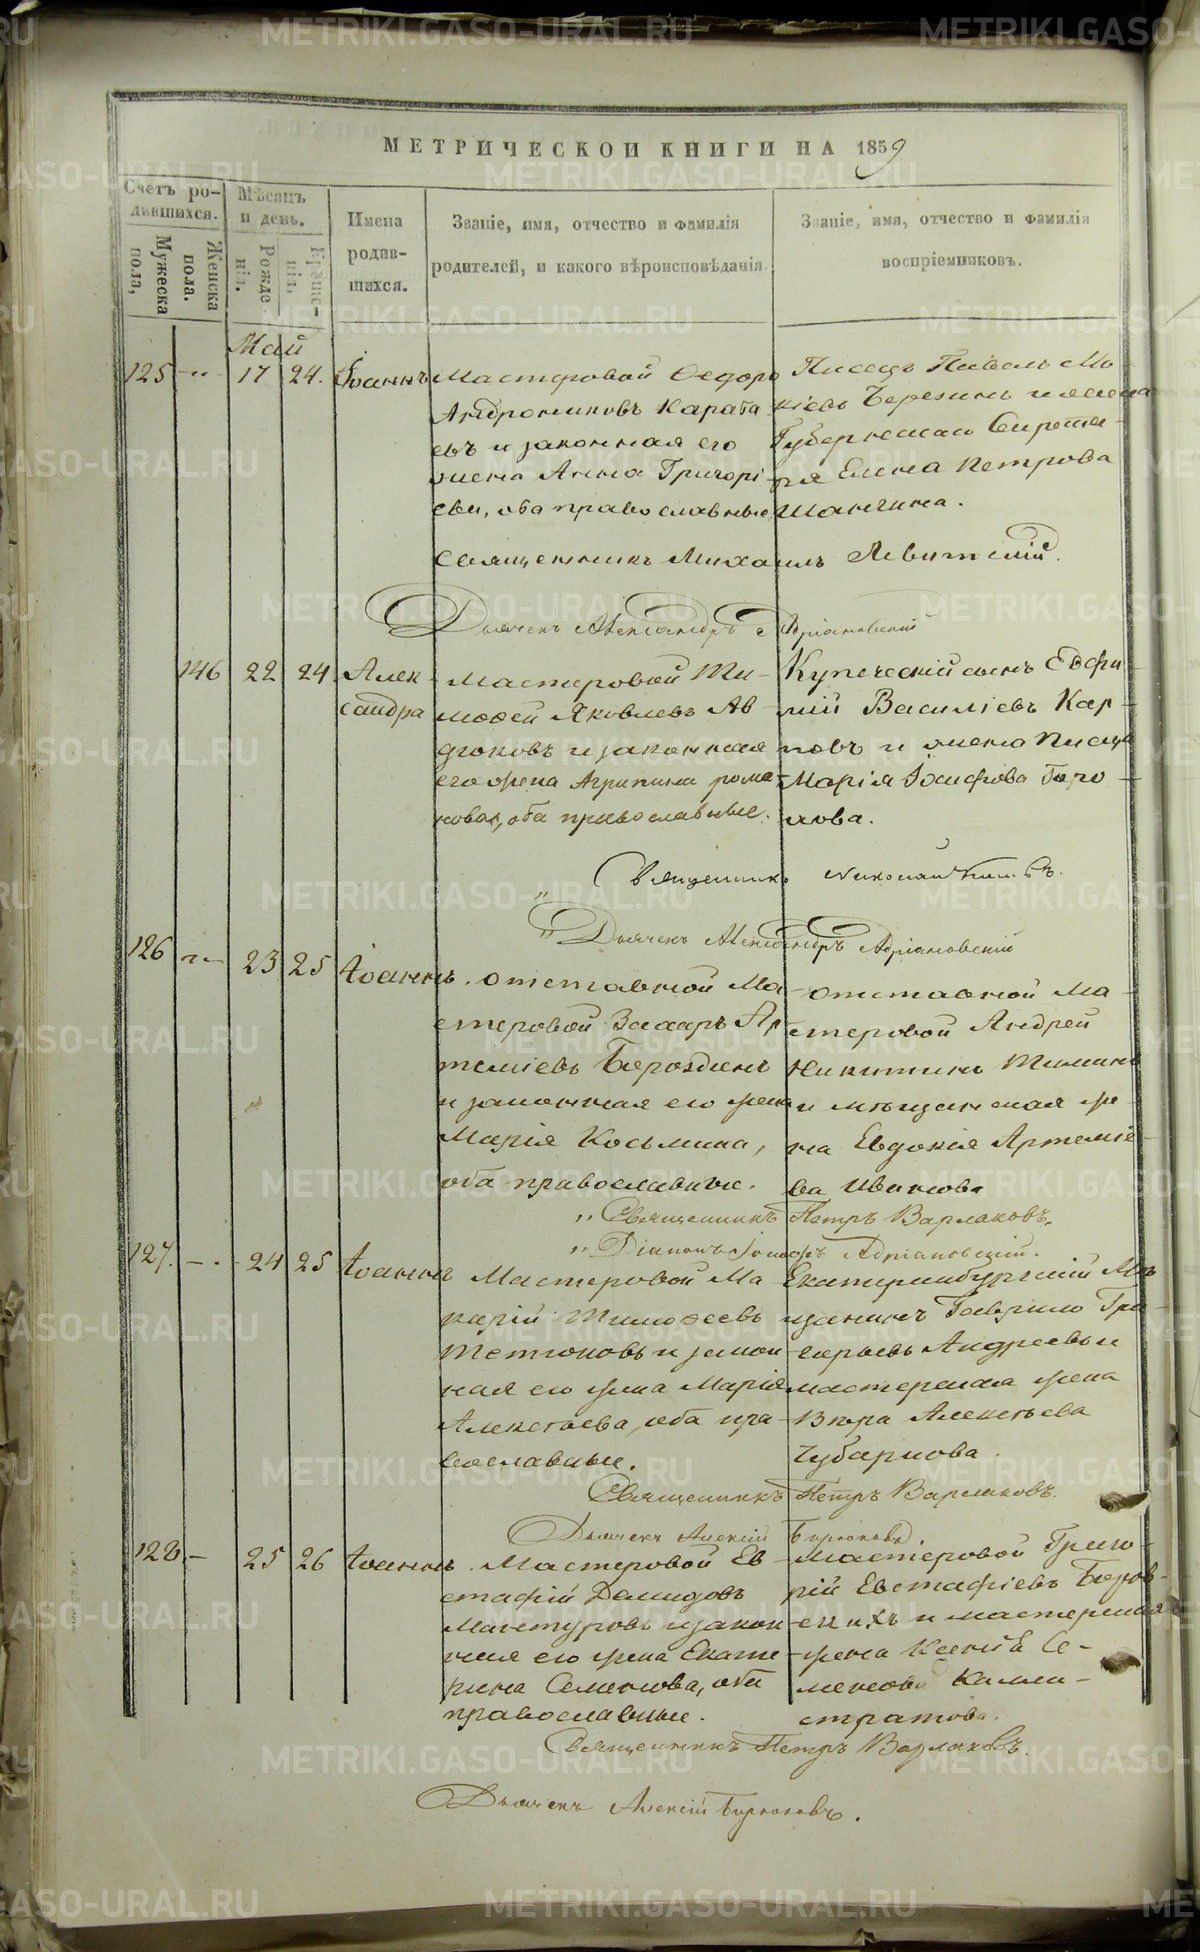 МЕТРИЧЕСКОЙ КНИГИ НА 1859
Счетъ ро-
дившихся.
Мужеска
пола,
Женска
пола.
Мѣсяцъ
и день.
Рожде
нія.
Креще-
нія,
Имена
родив-
шихся.
Званіе, имя, отчество и фамилія
родителей, и какого вѣроисповѣданія
Званіе, имя, отчество и фамилія
воспріемниковъ.
Май
125 17 24. Іоаннъ
Мастеровой Ѳедоръ
Андрониковъ Карата
евъ и законная его
жена Анна Григорі
ева, оба православные
Писецъ Павелъ Мо
кіевъ Березинъ и жена
Губернскаго Секрета-
ря Елена Петрова
Шангина.
Священникъ Михаилъ Левитскій.
Дьячекъ Александръ Адріановскій
146 22 24 Алек-
сандра
Мастеровой Ти-
моѳей Яковлевъ Ав-
дюковъ и законная
его жена Агрипина Рома-
нова, оба православные.
Купеческій сынъ Евфи-
мій Василіевъ Кар-
повъ и жена Писца
Марія Іосифова Горо-
хова.
Священникъ Николай
Дьячекъ Александръ Адріановскій
126 23 25 Іоаннъ.
отставной Ма-
стеровой Захаръ Ар-
теміевъ Бороздинъ
и законная его жена
Марія Косьмина,
оба православные.
отставной Ма-
стеровой Андрей
Никитинъ Тиминъ
и мѣщанская же-
на Евдокія Артеміе-
ва Иванова
Священникъ Петръ Варлаковъ.
Діаконъ Іоасафъ Адріановскій.
127. 24 25 Іоаннъ
Мастеровой Ма
карій Тимоѳеевъ
Тетюковъ и закон
ная его жена Марія
Алексѣева, оба пра-
вославные.
Екатеринбургскій Мѣ
щанинъ Гаврило Гри-
горьевъ Андреевъ и
мастерская жена
Вѣра Алексѣева
Чубаркова.
Священникъ Петръ Варлаковъ.
Дьячекъ Алексій Бирюковъ
128 25 26 Іоаннъ.
Мастеровой Ев-
стафій Демидовъ
Мангуровъ и закон
ная его жена Екате
рина Семенова, оба
православные.
Мастеровой Григо-
рій Евстафіевъ Боров-
скихъ и мастерская
жена Ксенія Се-
менова Кали-
стратова.
Священникъ Петръ Варлаковъ.
Дьячекъ Алексій Бирюковъ.
METRIKI.GASO-URAL.RU